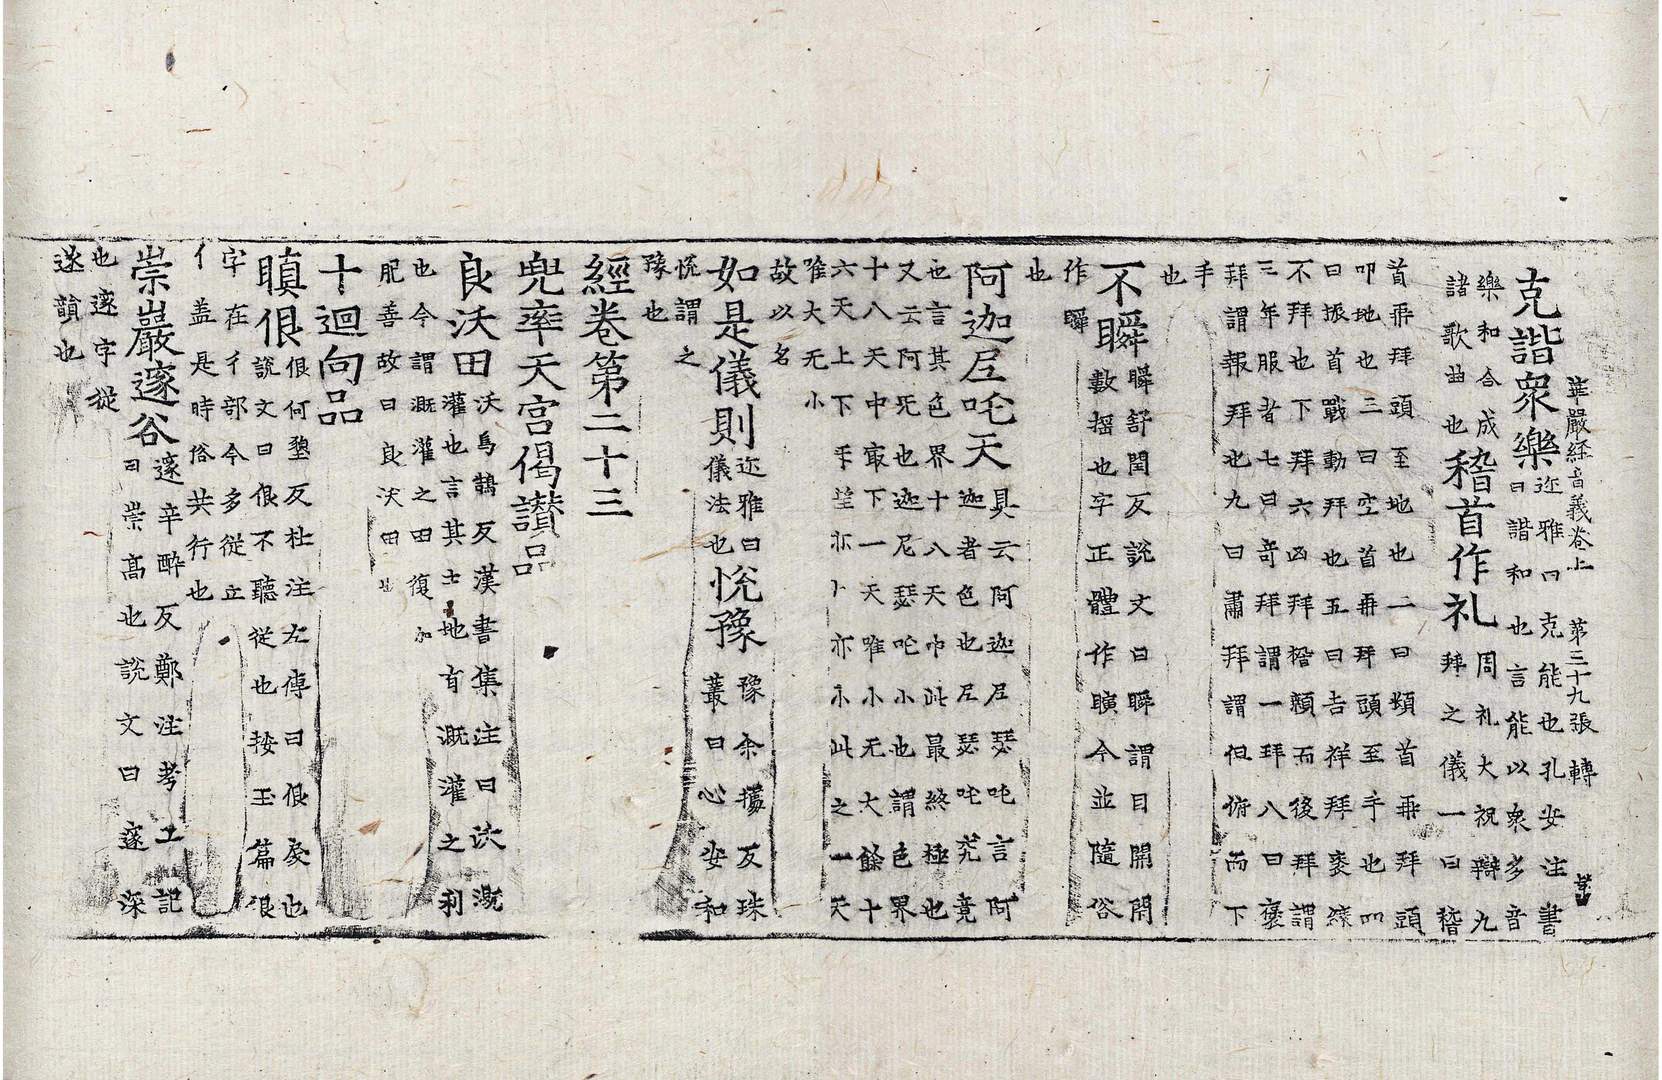 華嚴経音義卷上 第三十九張 轉
克諧衆樂迩雅曰克能也孔安注書
曰諧和也言能以衆多音
樂和合成
諸歌曲也
稽首作礼周礼大祝辯九
拜之儀一曰稽
首𠕅拜頭至地也二曰頓首𠕅拜頭
叩地也三曰空首𠕅拜頭至手也四
曰振首戰動拜也五曰吉祥拜衮縗
不拜也下拜六凶拜稽顙而後拜謂
三年服者七曰奇拜謂一拜八曰褒
拜謂報拜也九曰肅拜謂但俯而下
手
也
不瞬瞬舒閏反說文曰瞬謂目開閇
數揺也字正體作瞚今並隨俗
作瞬
也
阿迦𡰱吒天具云阿迦𡰱瑟吒言阿
迦者色也𡰱瑟吒究竟
也言其色界十八天中此最終極也
又云阿旡也迦尼瑟吒小也謂色界
十八天中㝡下一天唯小无大餘十
六天上下乎望亦小亦大此之一天
唯大无小
故以名
如是儀則迩雅曰
儀法也
悅豫豫余攄反珠
叢曰心安和
悅謂之
豫也
經卷第二十三
兜率天宮偈讃品
良沃田沃烏鵠反漢書集注曰沃溉
灌也言其土地有溉灌之利
也今謂溉灌之田復加
肥善故曰良沃田也
十迴向品
瞋佷佷何墾反杜注左傳曰佷戾也
說文曰佷不聽從也按玉篇佷
字在彳部今多從立
亻盖是時俗共行也
崇巖邃谷邃辛醉反鄭注考工記
曰崇高也說文曰邃深
也邃字從
遂韻也